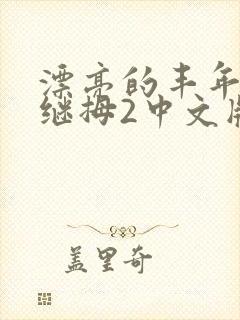 漂亮的丰年
继拇2中文版
盖里奇